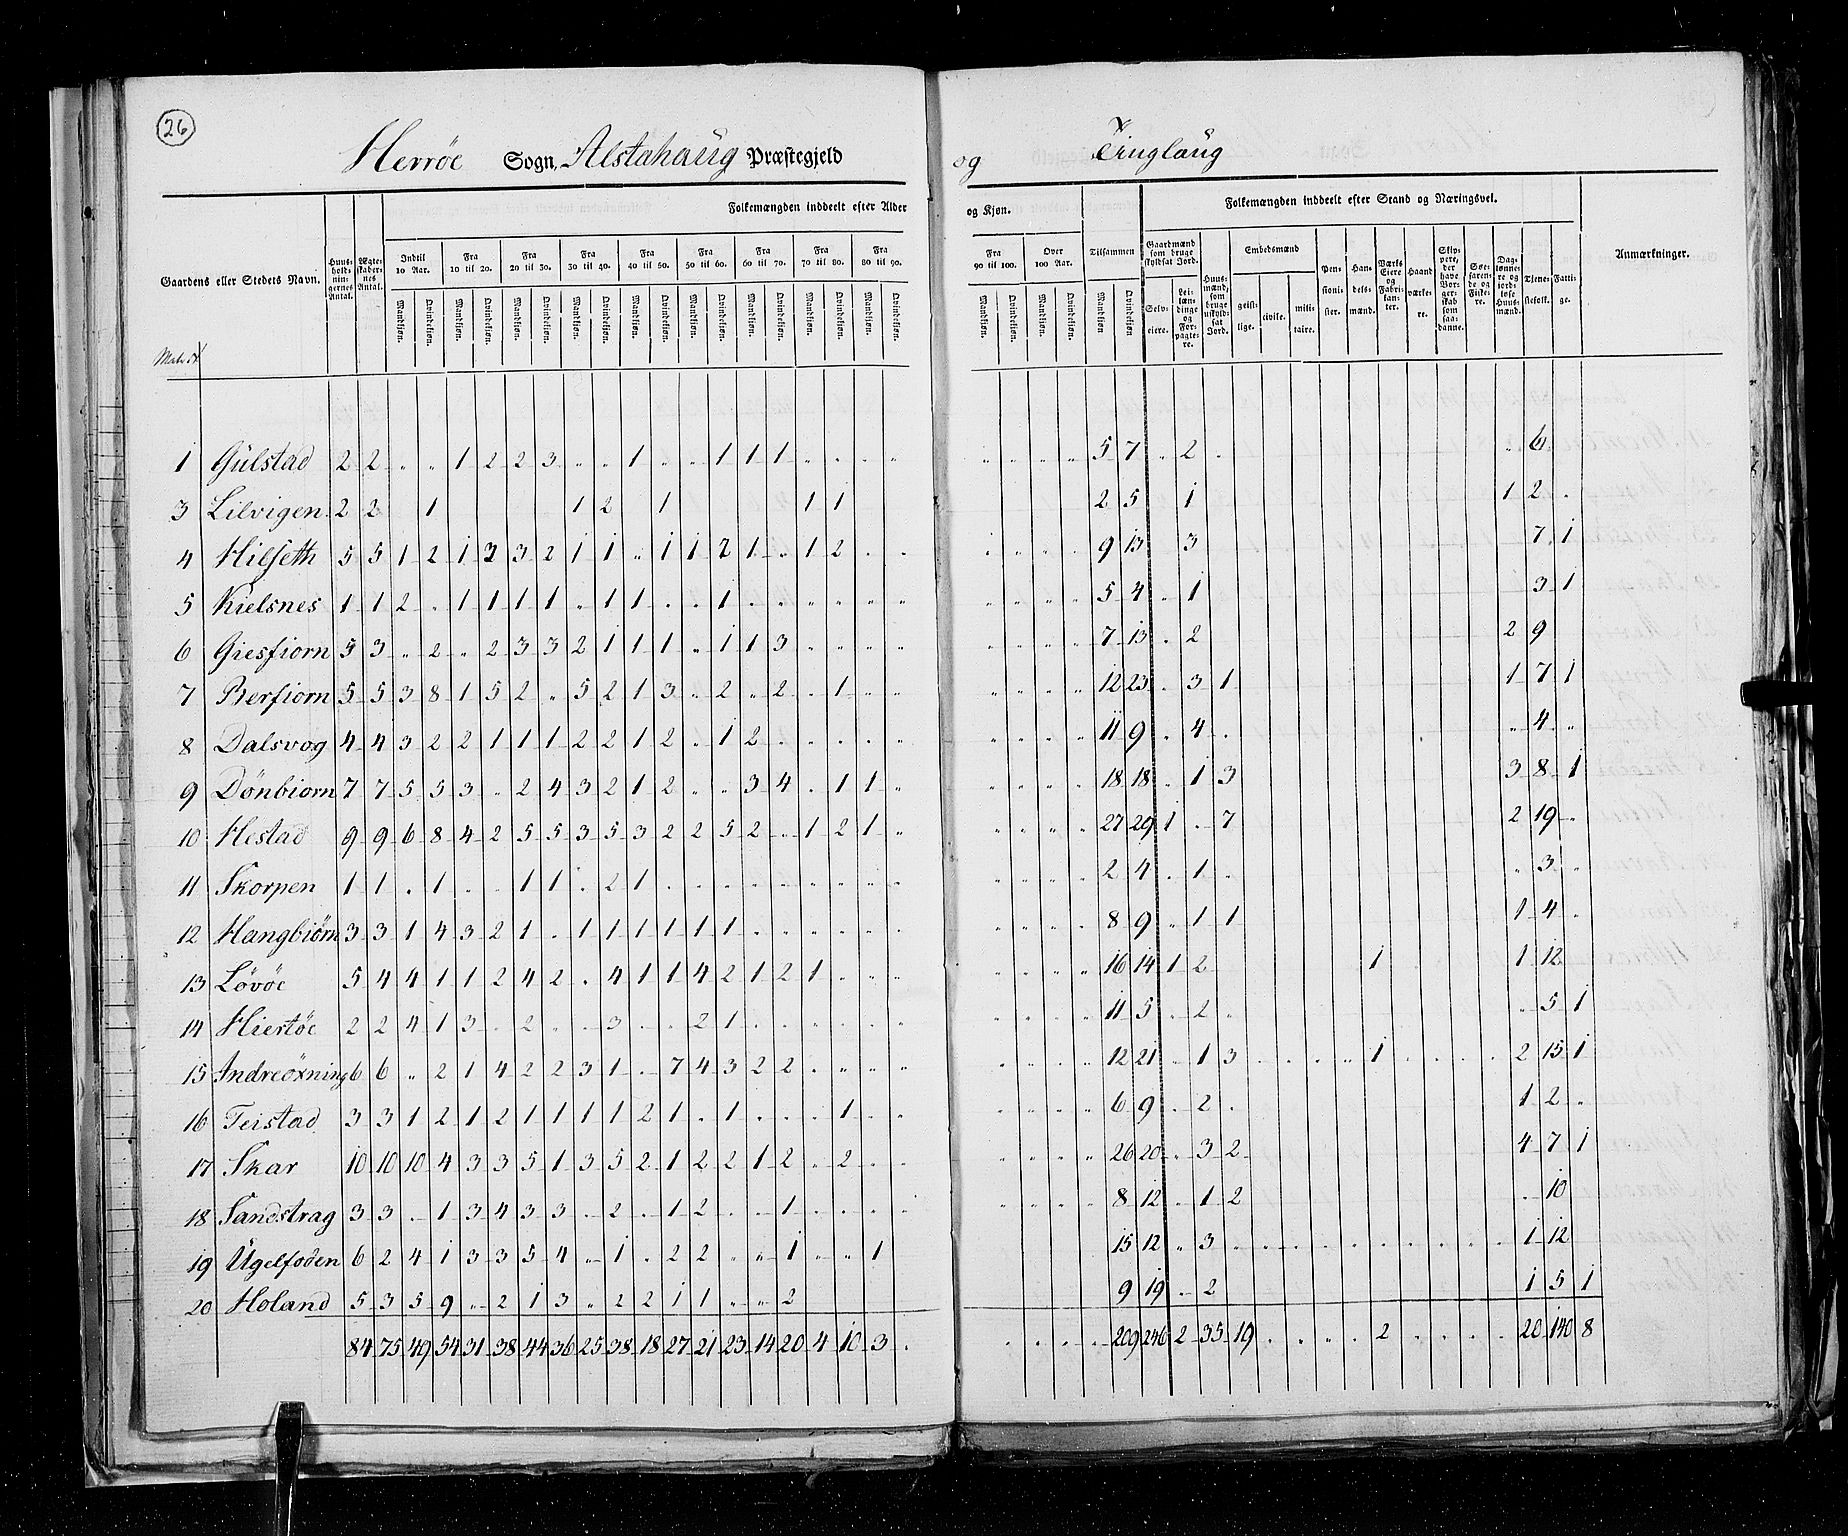 26
Herröe Sogn, Alstahaug Præstegjeld og Tinglaug
Gaardens eller Steders Navn.
Huusholdningernes Antal.
Ægteskabernes Antal.
Folkemængden inddeelt efter Alder og Kjøn.
Indtil 10 Aar. Fra 10 til 20. Fra 20 til 30. Fra 30 til 40. Fra 40 til 50. Fra 50 til 60. Fra 60 til 70. Fra 70 til 80. Fra 80 til 90. Fra 90 til 100. Over 100 Aar.
Mandkjøn. Qvindekjøn. Mandkjøn. Qvindekjøn. Mandkjøn. Qvindekjøn. Mandkjøn. Qvindekjøn. Mandkjøn. Qvindekjøn. Mandkjøn. Qvindekjøn. Mandkjøn. Qvindekjøn. Mandkjøn. Qvindekjøn. Mandkjøn. Qvindekjøn. Mandkjøn. Qvindekjøn. Mandkjøn. Qvindekjøn.
Tilsammen
Mandkjøn Qvindekjøn.
Folkemængden inddeelt efter Stand og Næringsvei.
Gaardmænd som bruge skyldsat Jord.
Selveiere.
Leilændinge og Forpagtere.
Huusmænd, som bruge uskyldsat Jord.
Embedsmænd
geistlige. civile. militaire.
Pensionister.
Handelsmænd.
Værks Eiere og Fabrikanter.
Haandværkere.
Skippere, der have Borgerskab som saadanne.
Søefarende og Fiskere.
Daglønnere og jordløse Huusmænd.
Tjenestefolk.
Fattige.
Anmærkninger.
Matr. N
1 Gülstad 2 2 " " 1 2 2 3 " " 1 " " 1 1 1 5 7 " 2 " 6
3 Lilvigen 2 2 1 1 2 1 1 1 2 5 1 1 2
4 Hilseth 5 5 1 2 1 3 3 2 1 1 " 1 1 2 1 " 1 2 9 13 3 7 1
5 Kielsnes 1 1 2 " 1 1 1 1 " 1 1 " " 1 5 4 " 1 3 1
6 Giesfiorn 5 3 " 2 " 2 3 3 2 1 1 1 " 1 1 3 7 13 " 2 2 9
7 Berfiorn 5 5 3 8 1 5 2 " 5 2 1 3 " 2 " 2 " 1 12 23 " 3 1 1 7 1
8 Dalsvog 4 4 3 2 2 1 1 1 2 2 1 2 " 1 2 11 9 " 4 " 4 "
9 Dönbiorn 7 7 5 5 3 " 2 4 3 2 1 2 " " 3 4 " 1 1 18 18 " 1 3 3 8 1
10 Hestad 9 9 6 8 4 2 5 5 3 5 3 2 2 5 2 " 1 2 1 27 29 1 " 7 2 19 "
11 Skorpen 1 1 " 1 " " 1 1 " 2 1 2 4 " 1 " 3 "
12 Hangbiörn 3 3 1 4 3 2 1 " 1 1 1 1 1 1 8 9 " 1 1 1 4 "
13 Lövöe 5 4 4 1 1 2 4 2 " 4 1 1 4 2 1 2 1 16 14 1 2 1 1 12
14 Hiertöe 2 2 4 1 3 " 2 " " 3 " " 2 1 11 5 " 2 " 5 1
15 Andreöxning 6 6 " 2 1 4 2 2 3 1 " 7 4 3 2 2 12 21 " 1 3 1 2 15 1
16 Teistad 3 3 1 2 1 2 1 1 1 1 2 1 " 1 " " " 1 6 9 " 2 " 1 2 "
17 Skar 10 10 10 4 3 3 5 1 3 5 2 1 2 2 1 2 " 2 26 20 " 3 2 4 7 1
18 Sandstrag 3 3 " 1 3 4 3 3 " 2 " 1 2 " " 1 8 12 " 1 2 " 10
19 Ügelfoden 6 2 4 1 3 3 5 4 " 1 " 2 2 " " 1 " " 1 15 12 " 3 1 12
20 Holand 5 3 5 9 " 2 1 3 " 2 2 1 1 " " 2 9 19 " 2 1 5 1
84 75 49 54 31 38 44 36 25 38 18 27 21 23 14 20 4 10 3 209 246 2 35 19 2 20 140 8